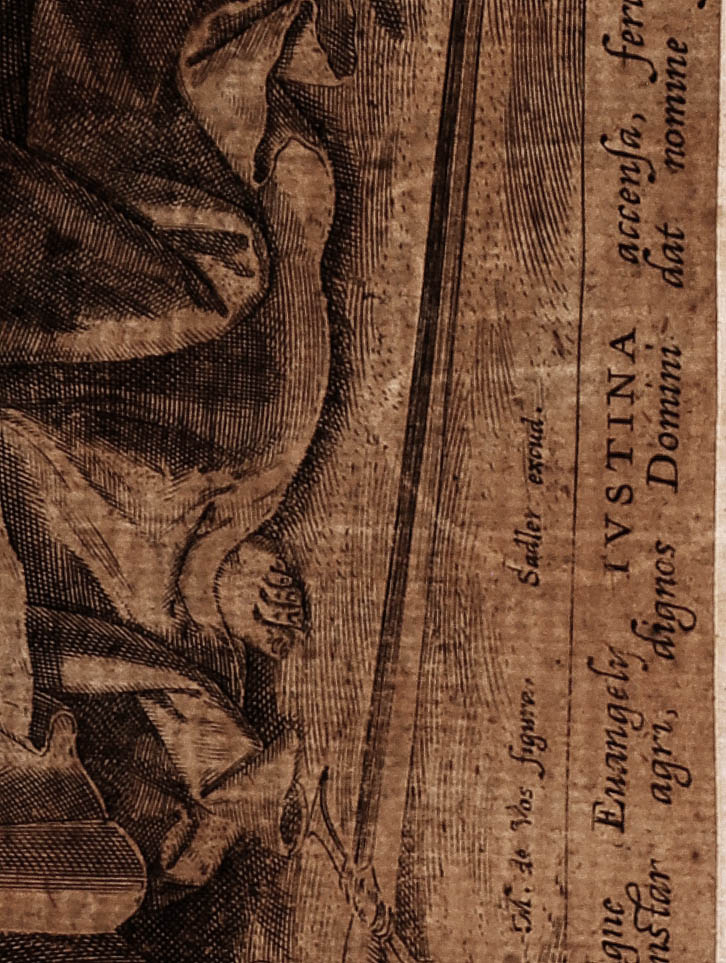 M. de Vos figura. Sadler excud.
que Euangelij IVSTINA accensa, feru
instar agri, dignos Domini dat nomine